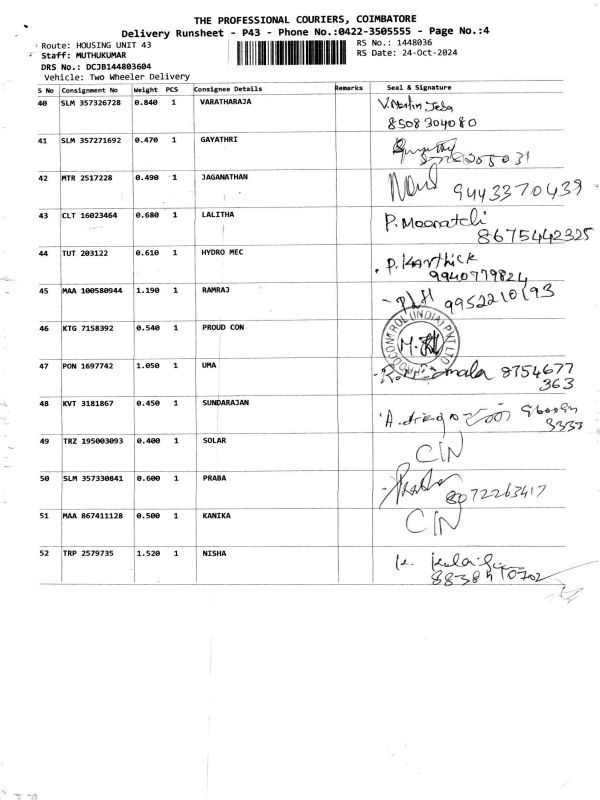 THE PROFESSIONAL COURIERS, COIMBATORE
Delivery Runsheet - P43 - Phone No.:0422-3505555 - Page No.:4
Route: HOUSING UNIT 43 RS No.: 1448036
Staff: MUTHUKUMAR RS Date: 24-Oct-2024
DRS No.: DCJB144803604
Vehicle: Two Wheeler Delivery
S No Consignment No Weight PCS Consignee Details Remarks Seal & Signature
40 SLM 357326728 0.840 1 VARATHARAJA V. Martin Jeba
8508304080
41 SLM 357271692 0.470 1 GAYATHRI
42 MTR 2517228 0.490 1 JAGANATHAN 9443370439
43 CLT 16023464 0.680 1 LALITHA P. Moonatchi
8675442325
44 TUT 203122 0.610 1 HYDRO MEC P. Karthick
9940779824
45 MAA 100580944 1.190 1 RAMRAJ 9952210193
46 KTG 7158392 0.540 1 PROUD CON
47 PON 1697742 1.050 1 UMA 8754677
363
48 KVT 3181867 0.450 1 SUNDARAJAN
3333
49 TRZ 195003093 0.400 1 SOLAR CIN
50 SLM 357330841 0.600 1 PRABA Praba
8072263417
51 MAA 867411128 0.500 1 KANIKA CIN
52 TRP 2579735 1.520 1 NISHA